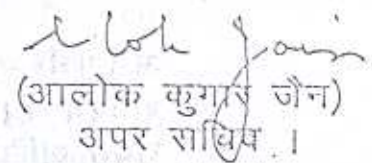 Alok Jain
(आलोक कुमार जैन)
अपर सचिव ।